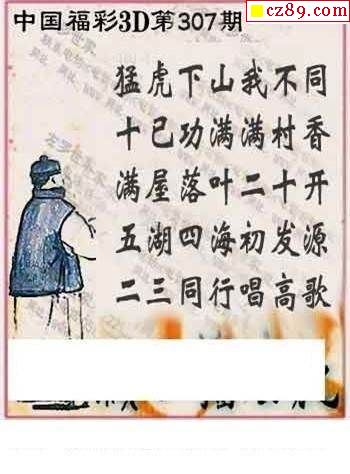 cz89.com
中国福彩3D第307期
猛虎下山我不同
十已功满满村香
满屋落叶二十开
五湖四海初发源
二三同行唱高歌